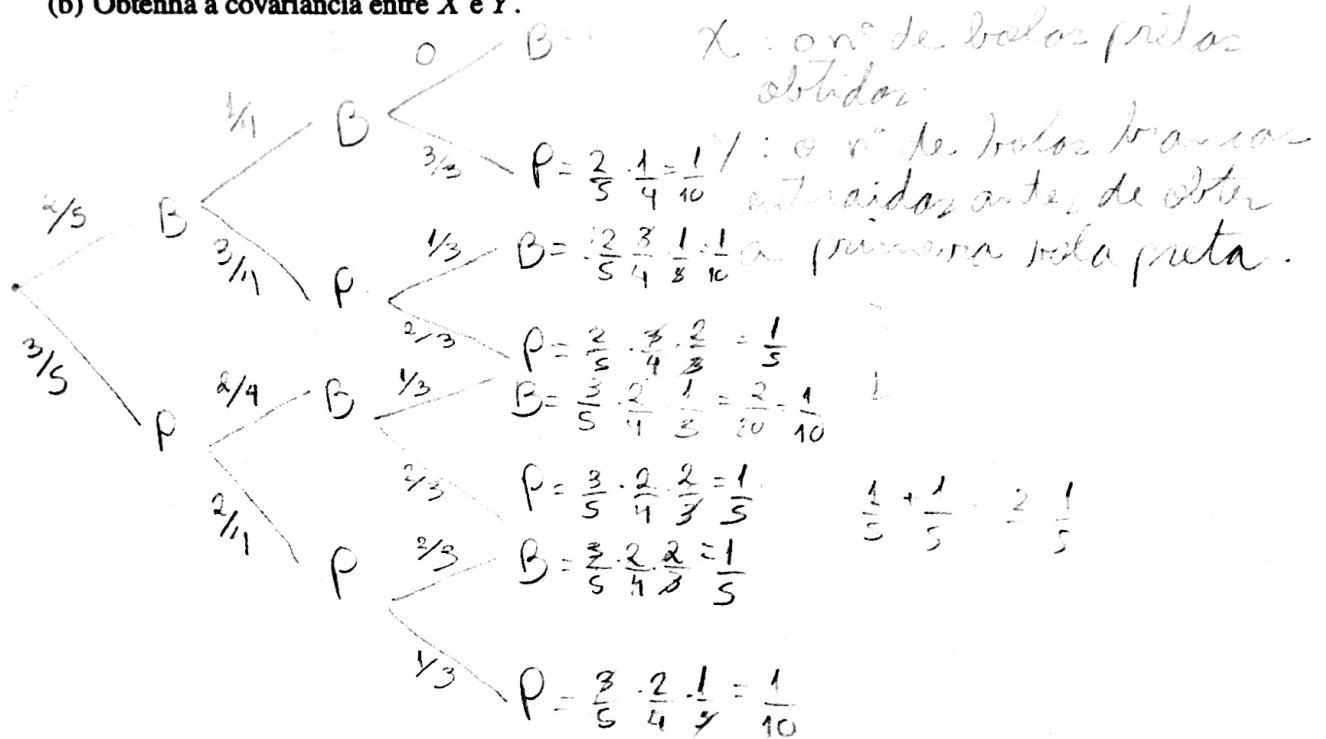 (b) Obtenha a covariância entre X e Y.
X : o nº de bolas pretas
obtidas.
Y : o nº de bolas brancas
extraidas antes de obter
a primeira bola preta.
0 B =
1/4 B
3/3 P = 2/5 · 1/4 = 1/10
2/5 B
3/4 P
1/3 B = 2/5 3/4 1/3 = 1/10
2/3 P = 2/5 · 3/4 · 2/3 = 1/5
3/5 P
2/4 B
1/3 B = 3/5 · 2/4 · 1/3 = 2/20 = 1/10
2/3 P = 3/5 · 2/4 · 2/3 = 1/5
1/5 + 1/5 2 1/5
2/4 P
2/3 B = 3/5 · 2/4 · 2/3 = 1/5
1/3 P = 3/5 · 2/4 · 1/3 = 1/10